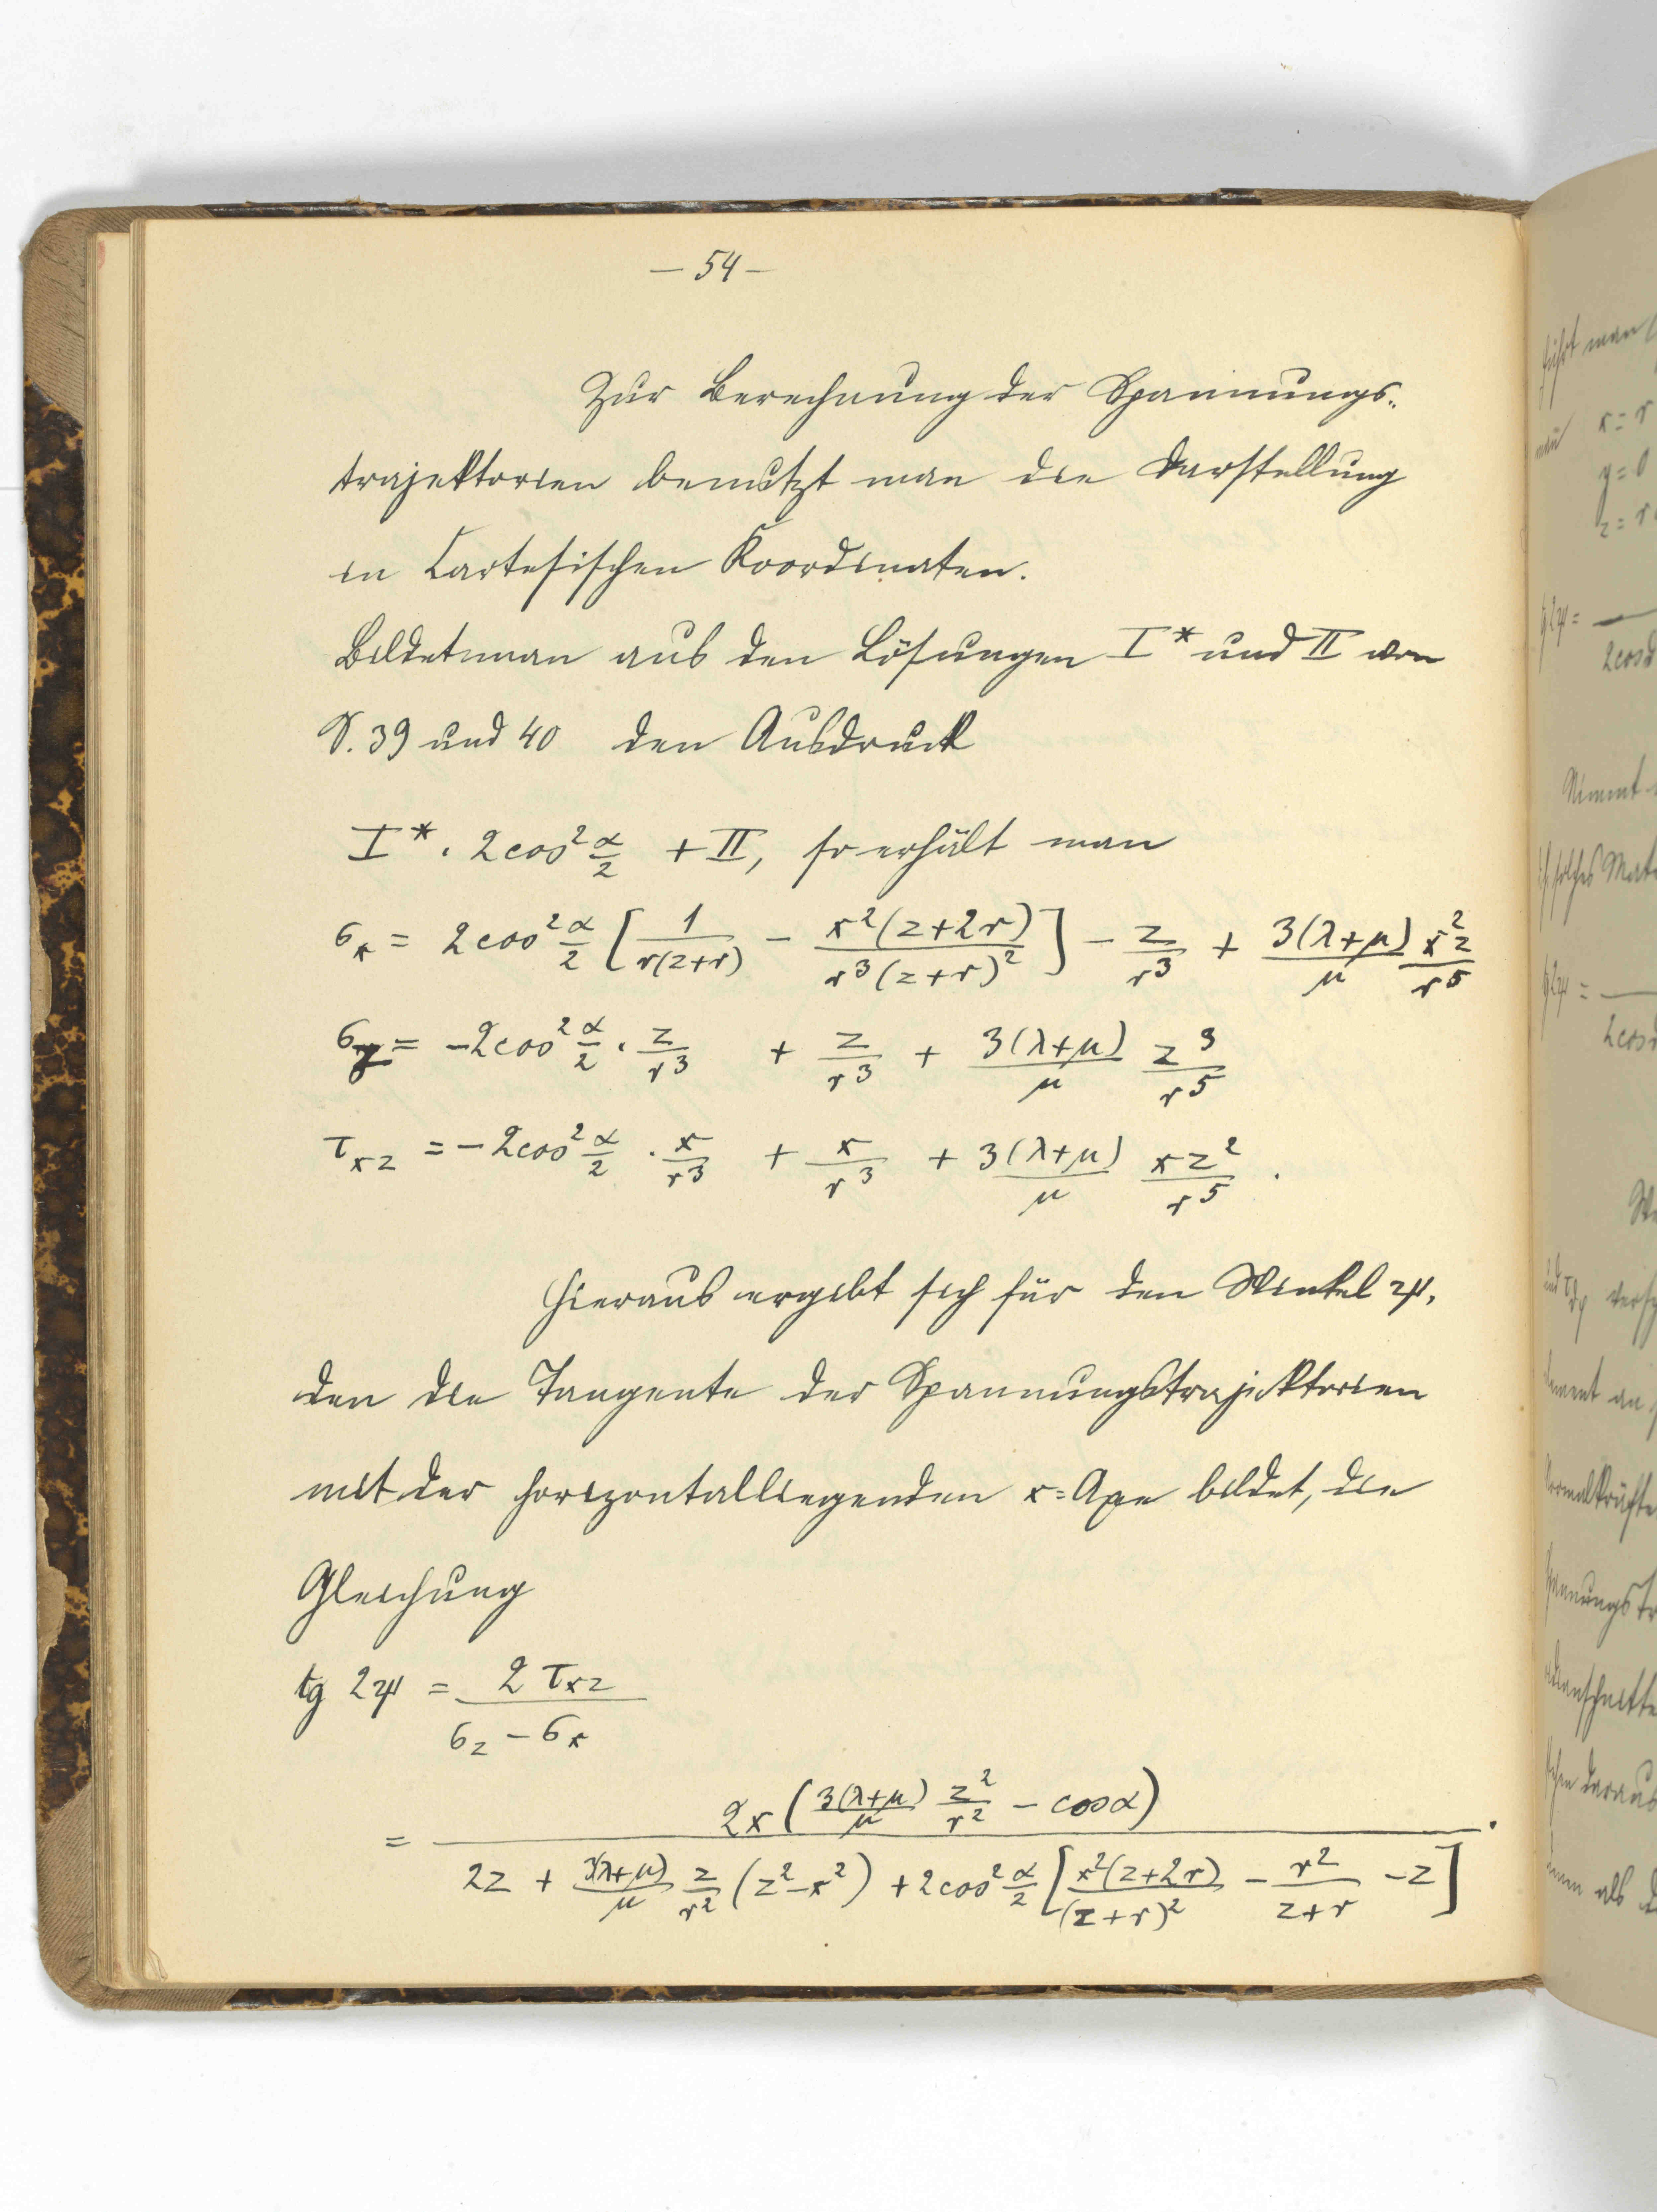 – 54 –
Zur Berechnung der Spannungs-
trajektorien benutzt man die Darstellung
in Cartesischen Koordinaten.
Bildet man aus den Lösungen I* und II von
S. 39 und 40 den Ausdruck
I* · 2cos² α/2 + II, so erhält man
σx = 2cos² α/2 [ 1/(r(z+r)) − x²(z+2r)/(r³(z+r)²) ] − z/r³ + 3(λ+μ)/μ x²z/r⁵
σz = −2cos² α/2 · z/r³ + z/r³ + 3(λ+μ)/μ z³/r⁵
τxz = −2cos² α/2 · x/r³ + x/r³ + 3(λ+μ)/μ xz²/r⁵ .
Hieraus ergibt sich für den Winkel ψ,
den die Tangente der Spannungstrajektorien
mit der horizontalliegenden x-Axe bildet, die
Gleichung
tg 2ψ = 2 τxz / (σz − σx)
= 2x ( 3(λ+μ)/μ z²/r² − cosα ) / ( 2z + 3(λ+μ)/μ z/r² (z²−x²) + 2cos² α/2 [ x²(z+2r)/(z+r)² − r²/(z+r) − z ] ) .
führt man
x = r
y = 0
z = r
tg 2ψ =
2cosα
Nimmt
tg 2ψ =
2cosα